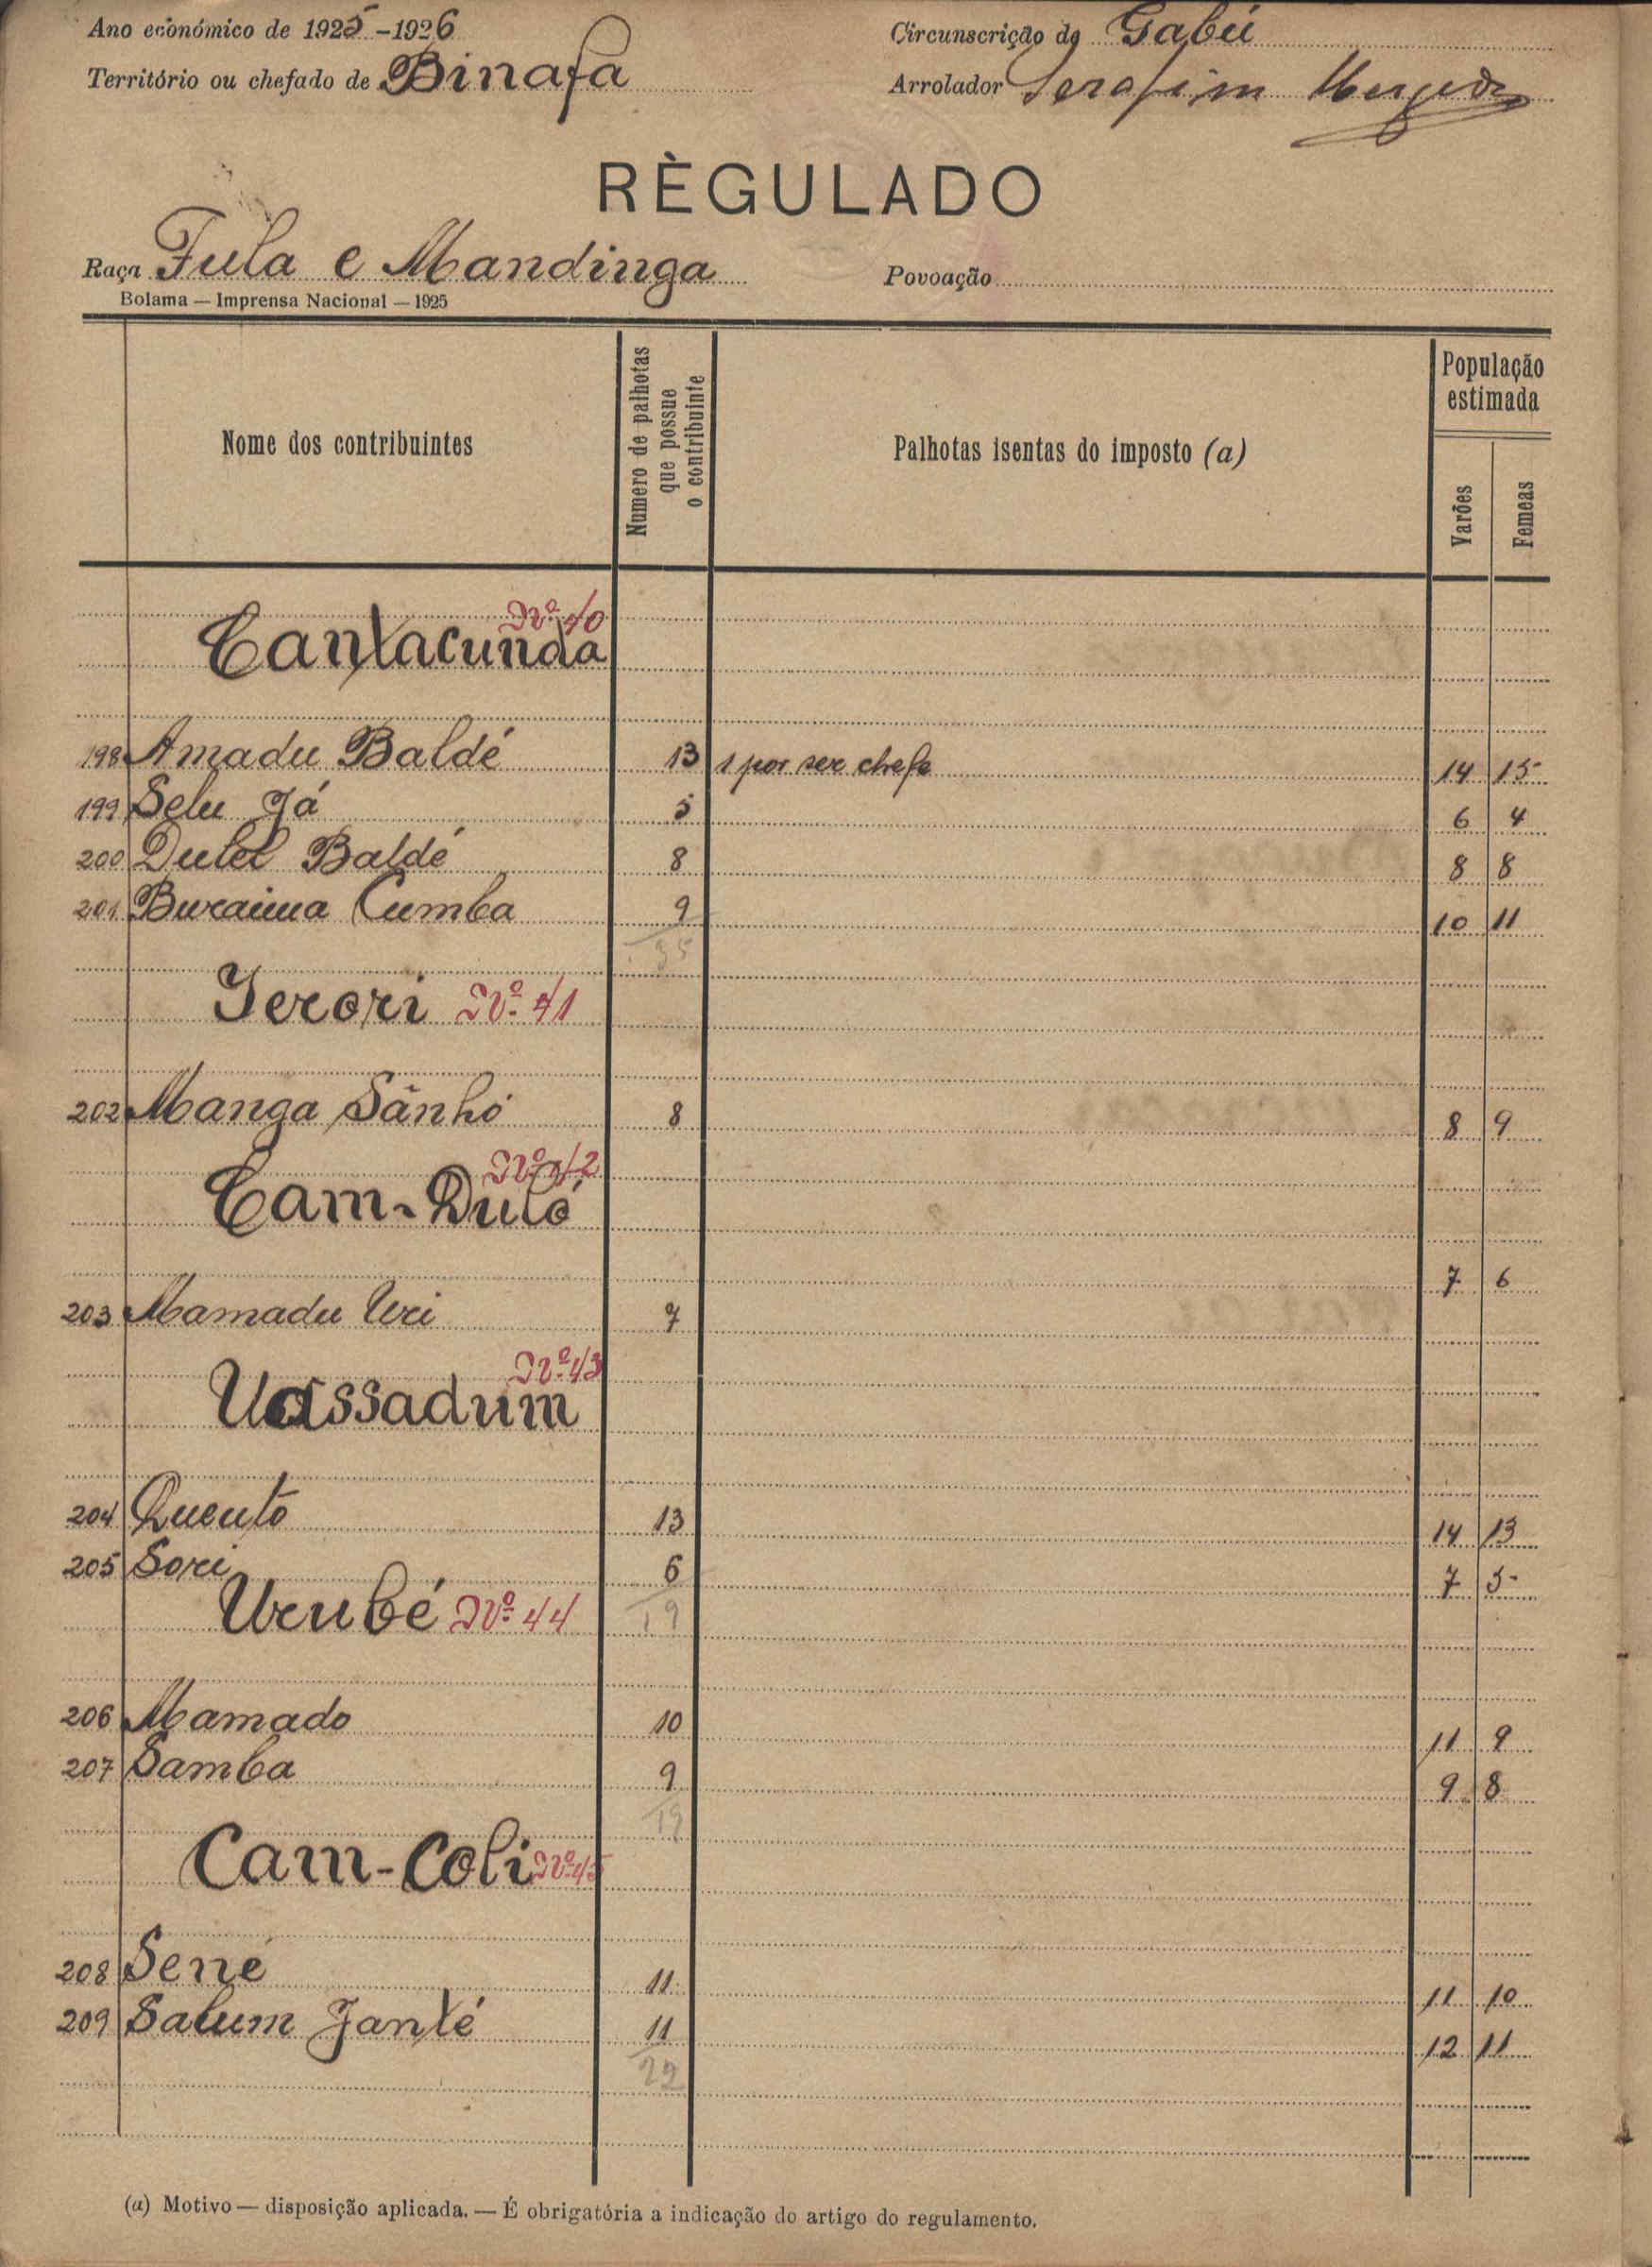 Ano económico de 1925-1926
Circunscrição de Gabú
Território ou chefado de Binafa
Arrolador Serafim
RÈGULADO
Raça Fula e Mandinga
Povoação
Bolama — Imprensa Nacional — 1925
Nome dos contribuintes
Numero de palhotas que possue o contribuinte
Palhotas isentas do imposto (a)
População estimada
Varões
Femeas
Nº 40
Cantacunda
198 Amadu Baldé 13 1 por ser chefe 14 15
199 Selu Já 5 6 4
200 Dulel Baldé 8 8 8
201 Buraima Cumba 9 10 11
35
Jerori Nº 41
202 Manga Sánhó 8 8 9
Nº 42
Cam-Duló
7 6
203 Mamadu Uri 7
Nº 43
Uassadum
204 Queuto 13 14 13
205 Sori 6 7 5
Urubé Nº 44
19
206 Mamado 10 11 9
207 Samba 9 9 8
19
Cam-Coli Nº 45
208 Sené 11 11 10
209 Salum Janté 11 12 11
22
(a) Motivo — disposição aplicada. — É obrigatória a indicação do artigo do regulamento.